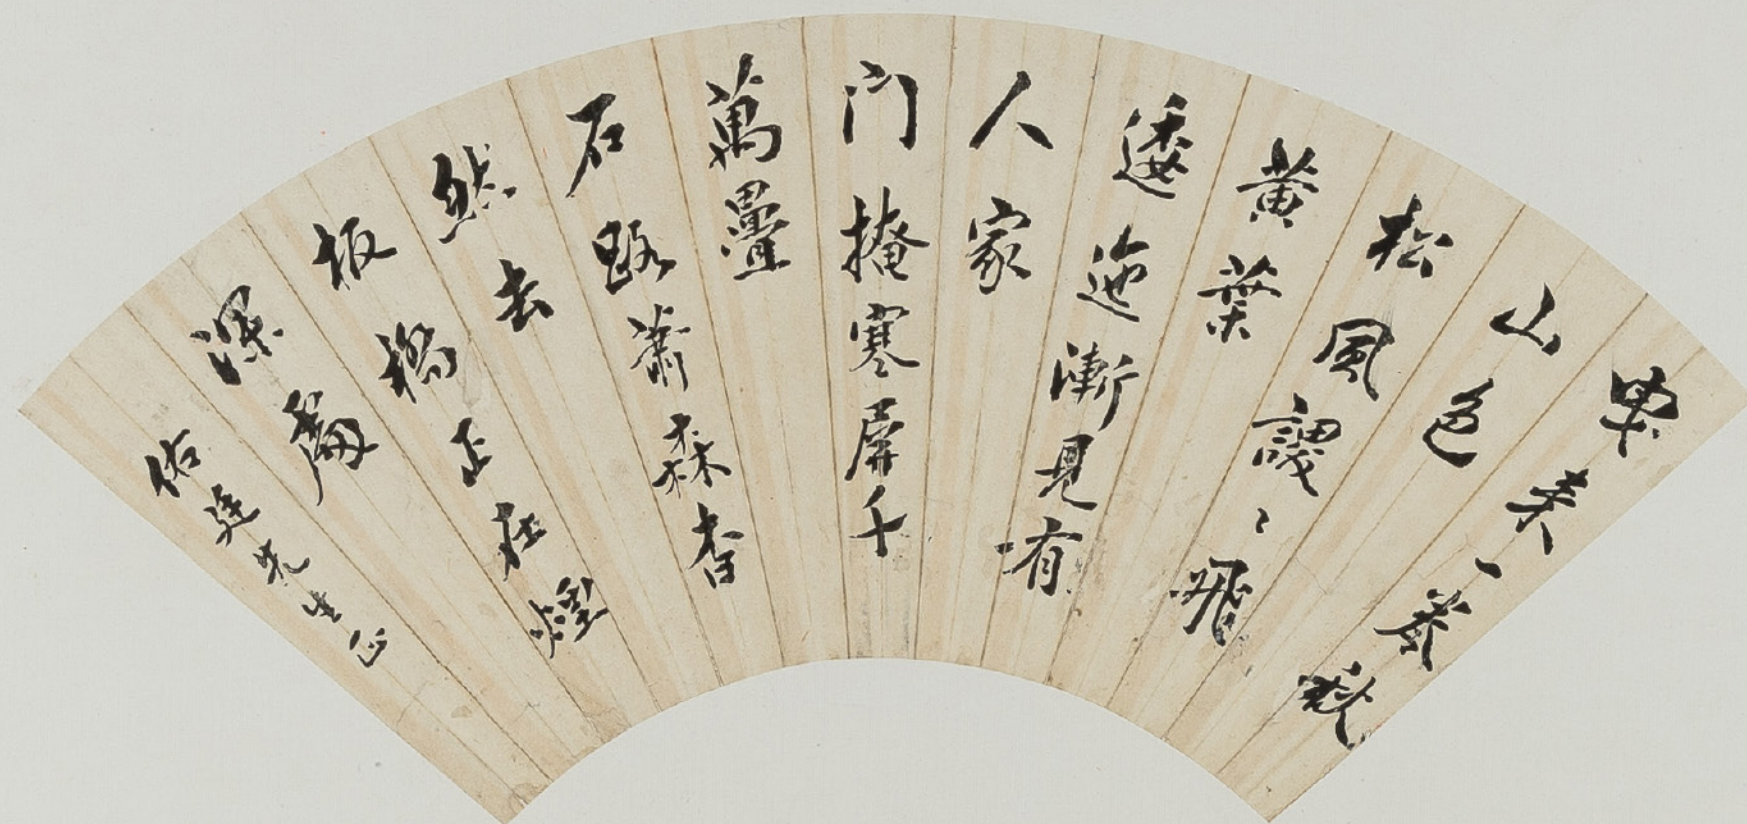 来一卷秋
山色
松風謖〻飛
黄葉
逶迤漸見有
人家
门掩寒屏千
萬疊
石路蕭森杳
然去
板橋正在煙
深處
佑廷先生正